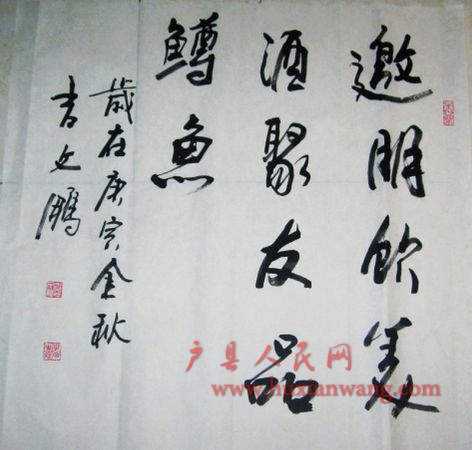 邀朋飲美
酒聚友品
鱒魚
歲在庚寅金秋
书文鹏
户县人民网
www.huxianwang.com